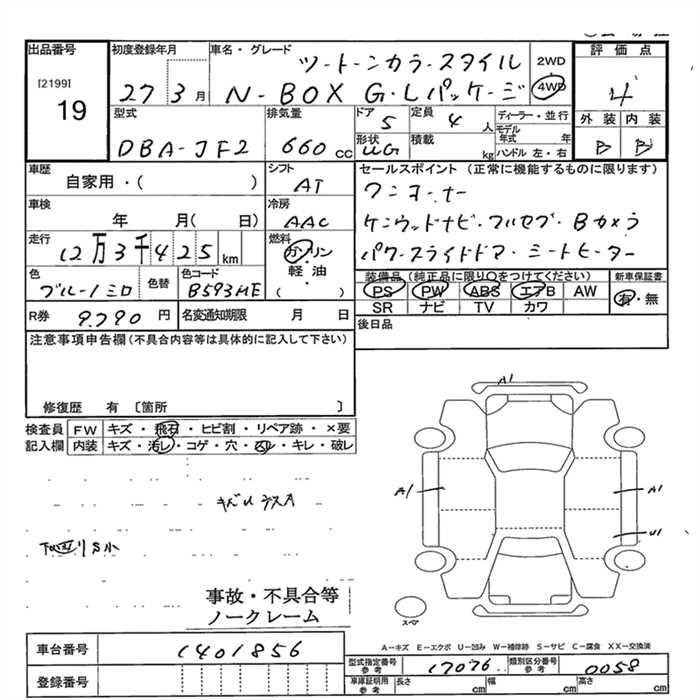 出品番号 初度登録年月 車名・グレード ツートーンカラースタイル 2WD 評価点
[2199] 19 27 3月 N-BOX G・Lパッケージ 4WD 4
型式 排気量 ドア 5 定員 4人 ディーラー・並行 外装 内装
DBA-JF2 660cc 形状 WG 積載 kg モデル年式 年 ハンドル 左・右 B B
車歴 シフト セールスポイント (正常に機能するものに限ります)
自家用・( ) AT ワンオーナー
車検 年 月( 日) 冷房 AAC ケンウッドナビ・フルセグ・Bカメラ
走行 12万3千425km 燃料 ガソリン・軽油・( ) パワースライドドア・シートヒーター
色 ブルー/シロ 色替 色コード B593ME 装備品(純正品に限り○をつけてください) 新車保証書
PS PW ABS エアB AW 有・無
SR ナビ TV カワ
R券 9,790円 名変通知期限 月 日 後日品
注意事項申告欄(不具合内容等は具体的に記入して下さい)
修復歴 有 〔箇所 〕
検査員記入欄 FW キズ・飛石・ヒビ割・リペア跡・×要
内装 キズ・汚レ・コゲ・穴・スレ・キレ・破レ
A1
A1 A1
U1
下回りS小
スペア
事故・不具合等
ノークレーム
A-キズ E-エクボ U-凹み W-補修跡 S-サビ C-腐食 XX-交換済
車台番号 1401856 型式指定番号 参考 17076 類別区分番号 参考 0058
登録番号 車庫証明用 参考 長さ cm 幅 cm 高さ cm